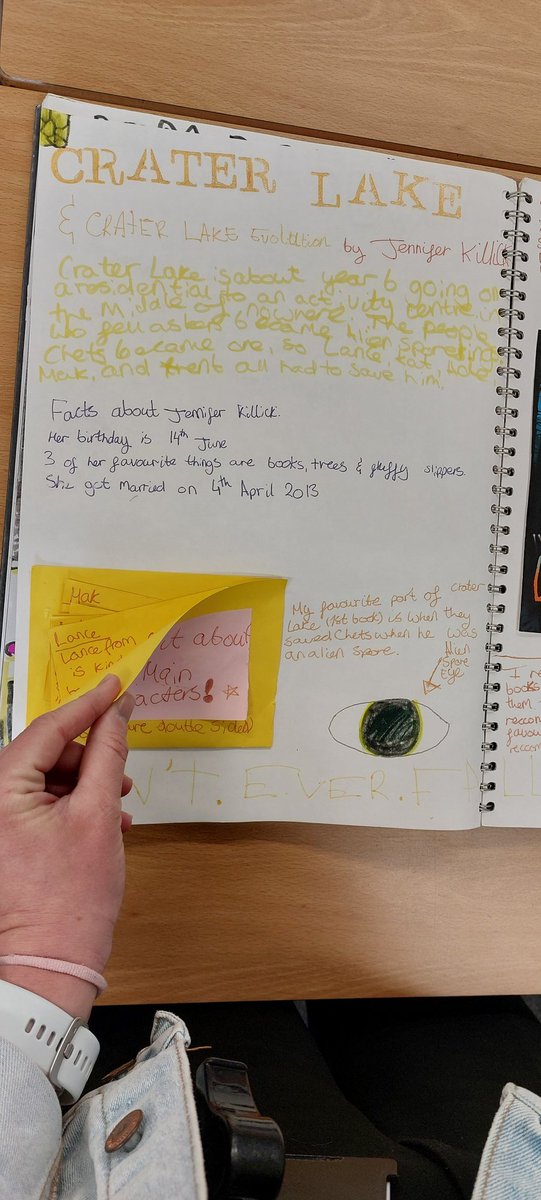 CRATER LAKE
& CRATER LAKE Evolution by Jennifer Killick
Crater Lake is about year 6 going on
a residential to an activity centre in
the middle of nowhere. The people
who fell asleep became alien spores
Chets became one, so Lance, Kat, Adele,
Mak, and Trent all had to save him.
Facts about Jennifer Killick.
Her birthday is 14th June
3 of her favourite things are books, trees & fluffy slippers.
She got Married on 4th April 2013
Mak
Lance
Lance from
is kind
out about
Main
acters!
are double sided
My favourite part of crater
Lake (1st book) is when they
saved Chets when he was
an alien spore.
Alien
Spore
Eye
I
books
them
recom
favou
recom
N'T.EVER.FALL